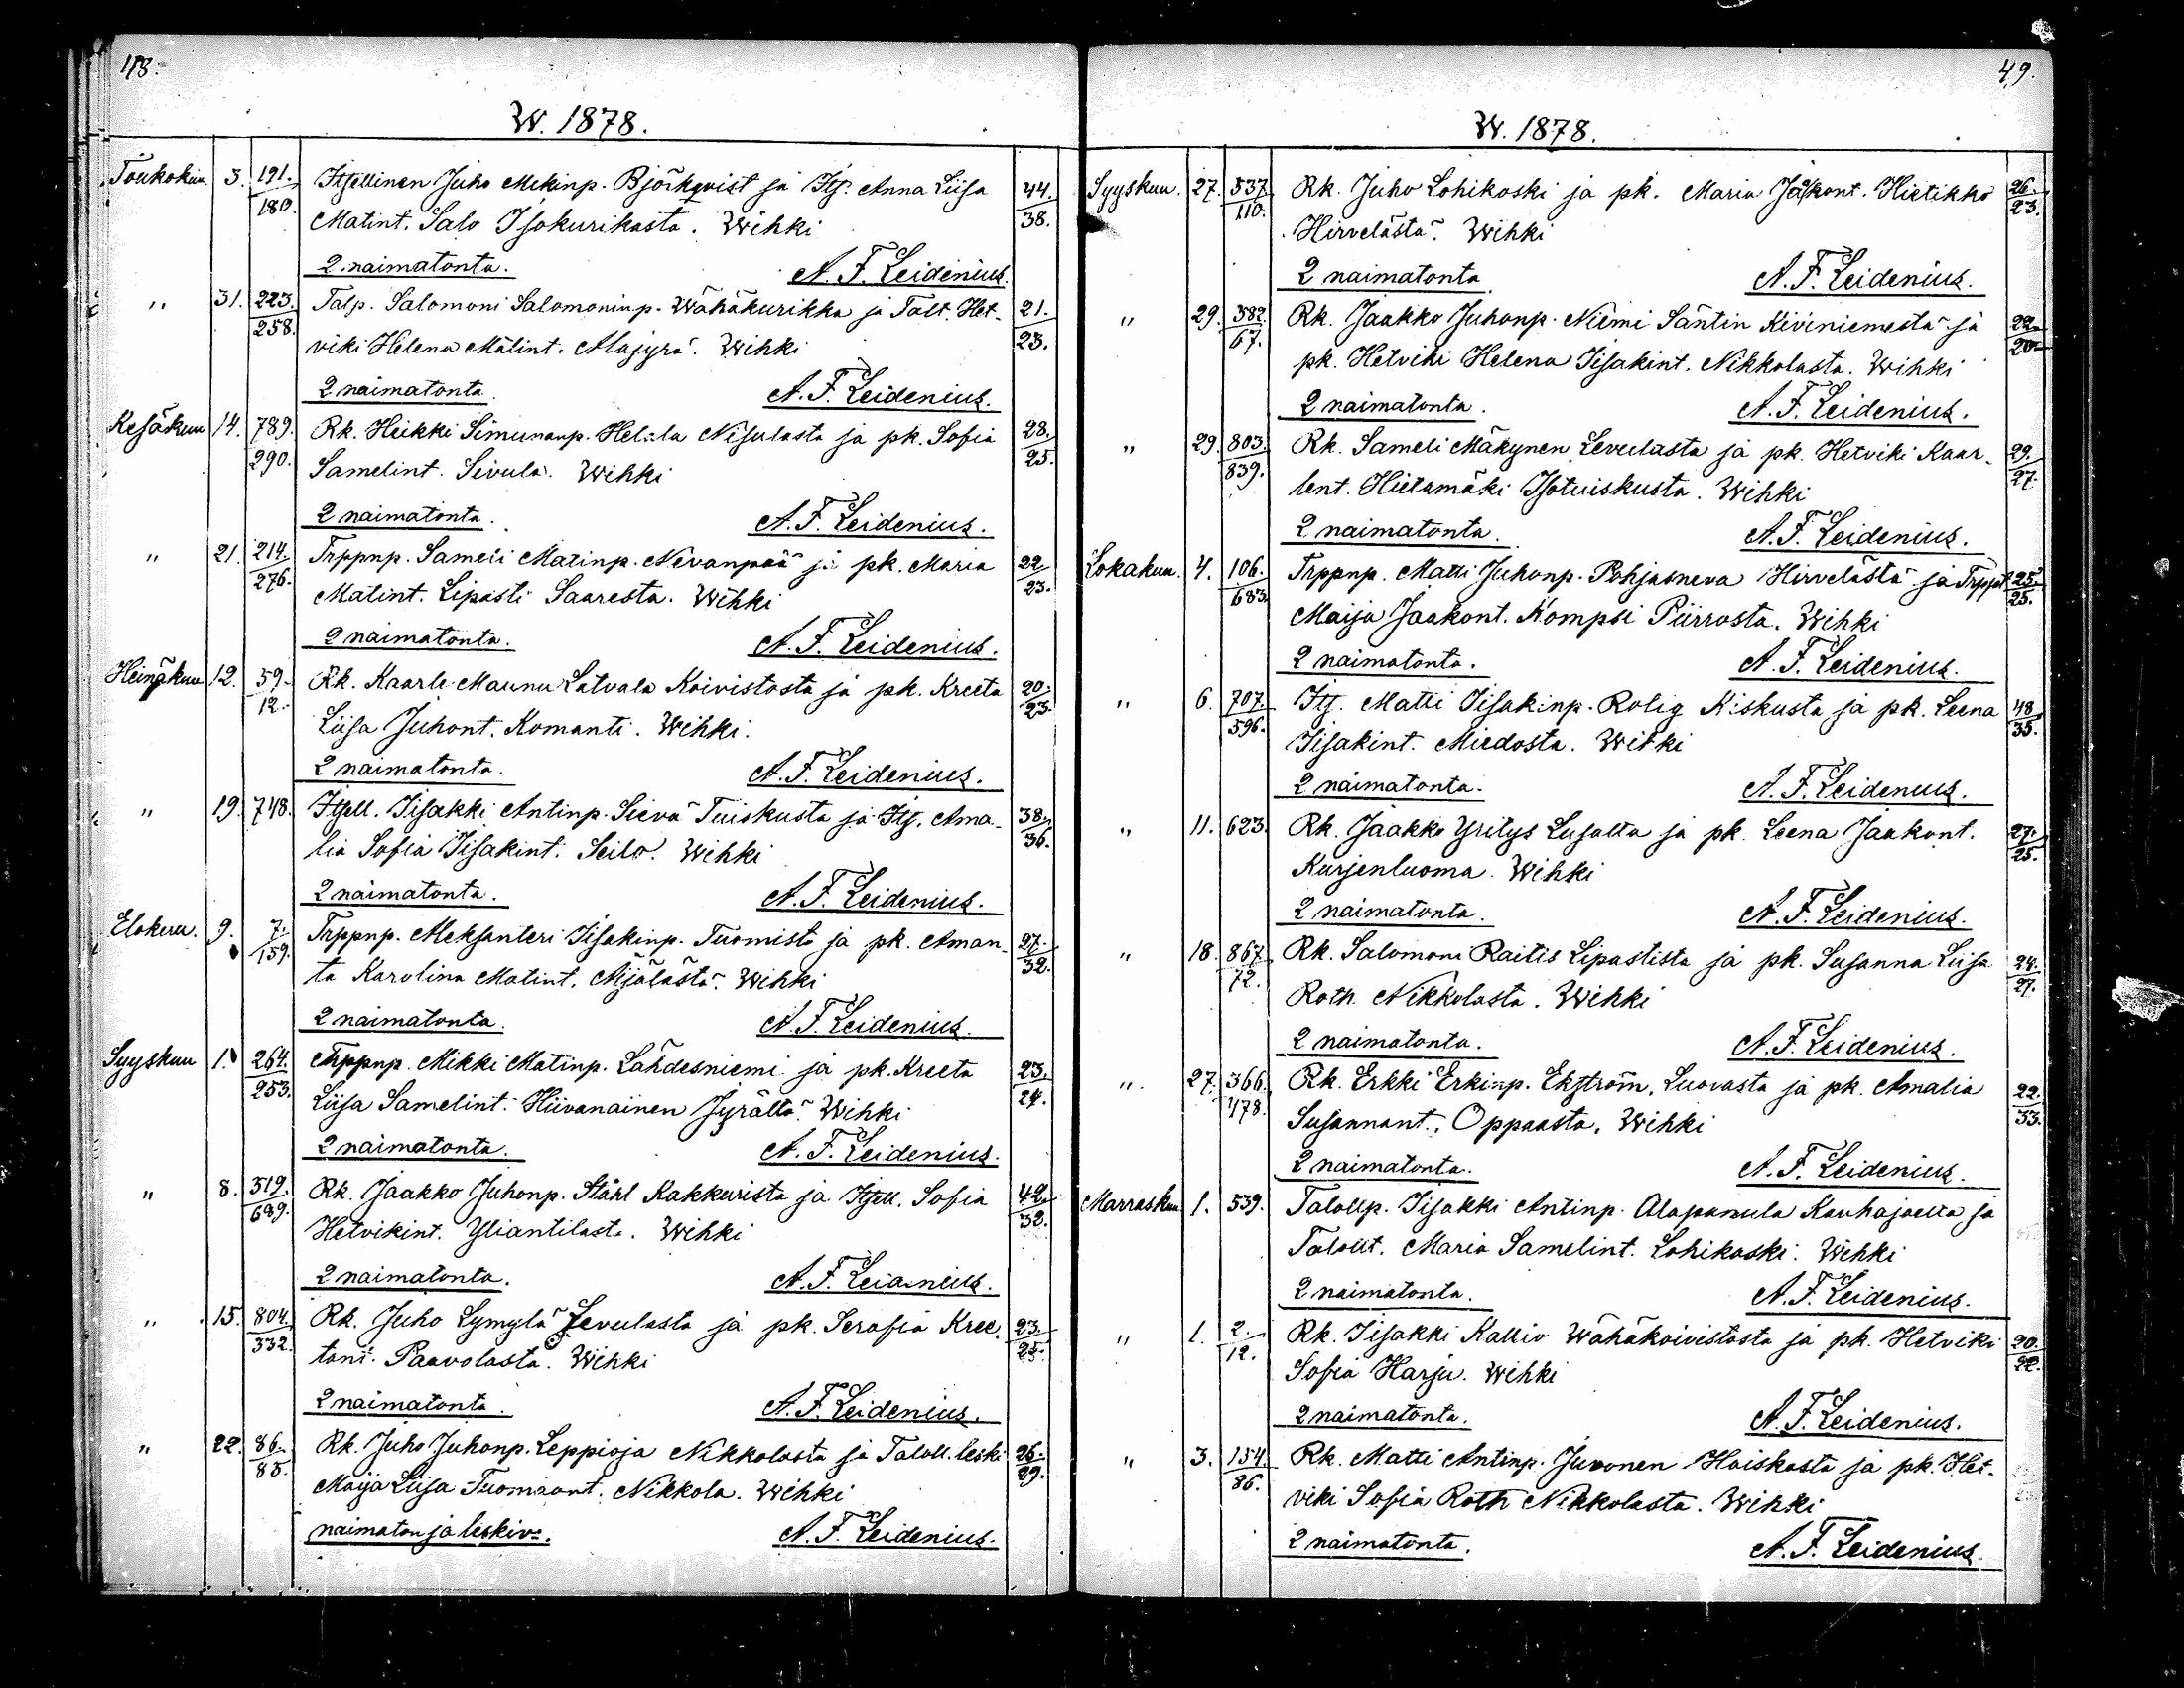 48.
W. 1878.
Toukokuu 3. 191. Itsellinen Juho Mikinp. Björkqvist ja Itj. Anna Liisa 44.
180. Matint. Salo Isokurikasta. Wihki 38.
2 naimatonta. A. F. Leidenius.
" 31. 223. Talp. Salomoni Salomoninp. Wähäkurikka ja Talt. Het- 21.
258. viki Helena Matint. Majyrä. Wihki 23.
2 naimatonta. A. F. Leidenius.
Kesäkuu 14. 789. Rk. Heikki Simunanp. Helila Nisulasta ja pk. Sofia 28.
290. Samelint. Sivula. Wihki 25.
2 naimatonta. A. F. Leidenius.
" 21. 214. Trppnp. Sameli Matinp. Nevanpää ja pk. Maria 22
276. Matint. Lipasti Saaresta. Wihki 23.
2 naimatonta. A. F. Leidenius.
Heinäkuu 12. 59. Rk. Kaarle Maunu Latvala Koivistosta ja pk. Kreeta 20.
12. Liisa Juhont. Komanti. Wihki. 23.
2 naimatonta. A. F. Leidenius.
" 19. 748. Itsell. Iisakki Antinp. Sievä Tuiskusta ja Itj. Ama- 38.
lia Sofia Iisakint. Seilo. Wihki 36.
2 naimatonta. A. F. Leidenius.
Elokuu. 9. 7. Trppnp. Aleksanteri Iisakinp. Tuomisto ja pk. Aman- 27.
159. ta Karolina Matint. Äijälästä. Wihki 32.
2 naimatonta. A. F. Leidenius.
Syyskuu 1. 264. Trppnp. Mikki Matinp. Lähdesniemi ja pk. Kreeta 23.
253. Liisa Samelint. Hiivanainen Jyrältä. Wihki 24.
2 naimatonta. A. F. Leidenius.
" 8. 319. Rk. Jaakko Juhonp. Ståhl Kakkurista ja Itjell. Sofia 42.
689. Hetvikint. Yliantilasta. Wihki 32.
2 naimatonta. A. F. Leidenius.
" 15. 804. Rk. Juho Lymylä Levulasta ja pk. Serafia Kree- 23.
332. tant. Paavolasta. Wihki 25.
2 naimatonta. A. F. Leidenius.
" 22. 86. Rk. Juho Juhonp. Leppioja Nikkolasta ja Taloll. leski 26.
85. Maija Liisa Tuomaant. Nikkola. Wihki 29.
naimaton ja leskivo. A. F. Leidenius.
49.
W. 1878.
Syyskuu. 27. 537. Rk. Juho Lohikoski ja pk. Maria Jaakont. Hietikko 26.
110. Hirvelästä. Wihki 23.
2 naimatonta A. F. Leidenius.
" 29. 382. Rk. Jaakko Juhonp. Niemi Säntin Kiviniemestä ja 22.
67. pk. Hetviki Helena Iisakint. Nikkolasta. Wihki 20.
2 naimatonta. A. F. Leidenius.
" 29. 803. Rk. Sameli Mäkynen Levulasta ja pk. Hetviki Kaar- 29.
839. lent. Hietamäki Isotuiskusta. Wihki 27.
2 naimatonta. A. F. Leidenius.
Lokakuu. 4. 106. Trppnp. Matti Juhonp. Pohjasneva Hirvelästä ja Trppt 25.
683. Maija Jaakont. Kompsi Piirrosta. Wihki 25.
2 naimatonta. A. F. Leidenius.
" 6. 707. Itj. Matti Iisakinp. Rolig Kiskusta ja pk. Leena 48.
596. Iisakint. Miedosta. Wihki 35.
2 naimatonta. A. F. Leidenius.
" 11. 623. Rk. Jaakko Yritys Lusalta ja pk. Leena Jaakont. 27.
Kurjenluoma. Wihki 25.
2 naimatonta. A. F. Leidenius.
" 18. 867. Rk. Salomoni Raitis Lipastista ja pk. Susanna Liisa 24.
72. Roth Nikkolasta. Wihki 27.
2 naimatonta. A. F. Leidenius.
" 27. 366. Rk. Erkki Erkinp. Ekström, Luovasta ja pk. Amalia 22.
478. Susannant. Oppaasta. Wihki 33.
2 naimatonta. A. F. Leidenius.
Marraskuu 1. 539. Talollp. Iisakki Antinp. Alapanula Kauhajoelta ja
Talollt. Maria Samelint. Lohikoski. Wihki
2 naimatonta. A. F. Leidenius.
" 1. 2. Rk. Iisakki Kallio Wähäkoivistosta ja pk. Hetviki 20.
12. Sofia Harju. Wihki 22.
2 naimatonta. A. F. Leidenius.
" 3. 154. Rk. Matti Antinp. Juvonen Haiskasta ja pk. Het-
86. viki Sofia Roth Nikkolasta. Wihki
2 naimatonta. A. F. Leidenius.